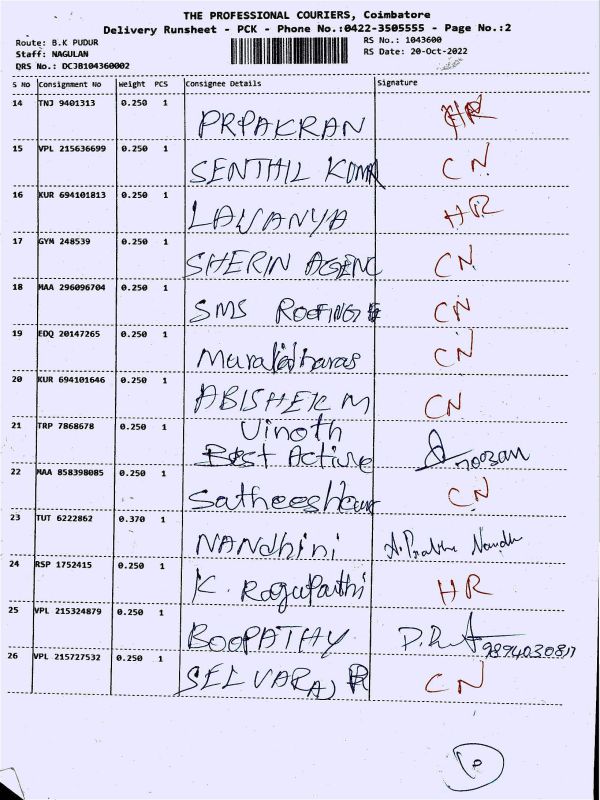 THE PROFESSIONAL COURIERS, Coimbatore
Delivery Runsheet - PCK - Phone No.:0422-3505555 - Page No.:2
Route: B.K PUDUR RS No.: 1043600
Staff: NAGULAN RS Date: 20-Oct-2022
DRS No.: DCJB104360002
S No Consignment No Weight PCS Consignee Details Signature
14 TNJ 9401313 0.250 1
PRPAKRAN HR
15 VPL 215636699 0.250 1
SENTHIL KUMA CN
16 KUR 694101813 0.250 1
LAVANYA HR
17 GYM 248539 0.250 1
SHERIN AGENC CN
18 MAA 296096704 0.250 1
SMS ROOFINGS CN
19 EDQ 20147265 0.250 1
Muralidharas CN
20 KUR 694101646 0.250 1
ABISHEK M CN
21 TRP 7868678 0.250 1
Vinoth
Best Active
22 MAA 858398085 0.250 1
Satheeshkum CN
23 TUT 6222862 0.370 1
NANdhini A. Prabhu Nandh
24 RSP 1752415 0.250 1
K. Ragupathi HR
25 VPL 215324879 0.250 1
BOOPATHY
26 VPL 215727532 0.250 1
SELVARAJ R CN